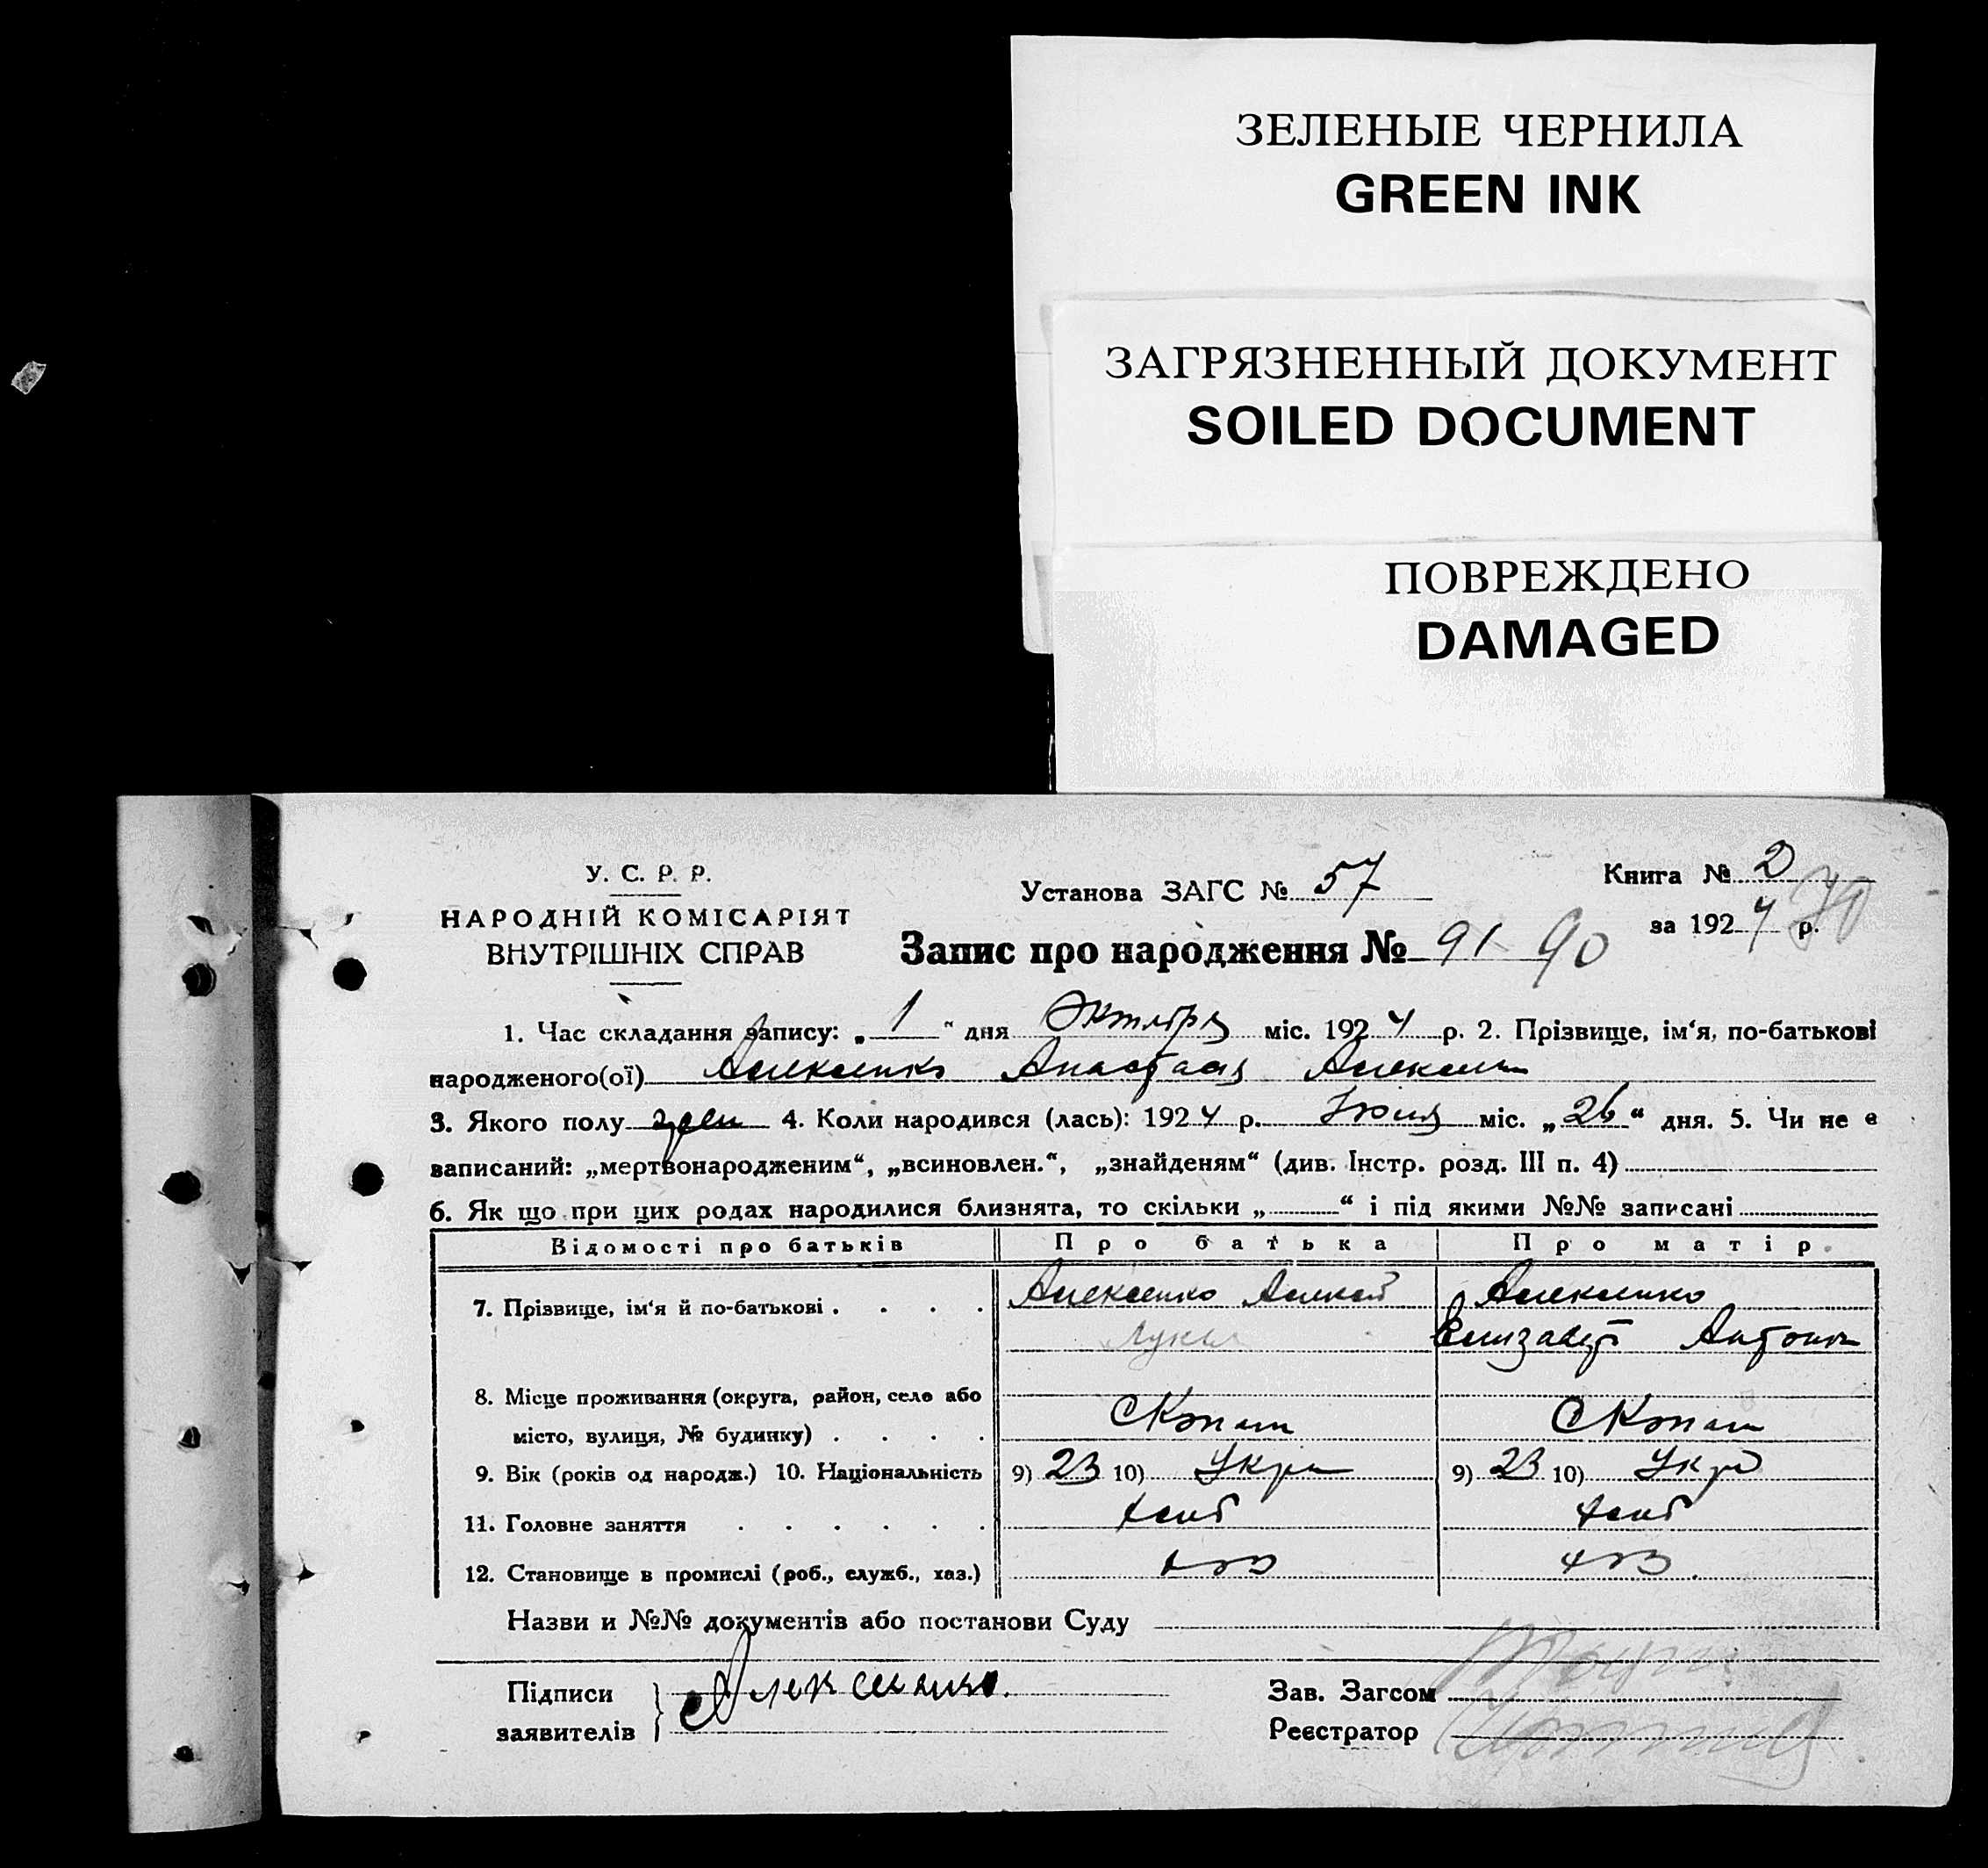 ЗЕЛЕНЫЕ ЧЕРНИЛА
GREEN INK
ЗАГРЯЗНЕННЫЙ ДОКУМЕНТ
SOILED DOCUMENT
ПОВРЕЖДЕНО
DAMAGED
У. С. Р. Р.
НАРОДНІЙ КОМІСАРІЯТ
ВНУТРІШНІХ СПРАВ
Установа ЗАГС № 57
Книга № 2
за 1924 р. 70
Запис про народження № 91 90
1. Час складання запису: „ 1 “ дня Октября міс. 1924 р. 2. Прізвище, ім‘я, по-батькові
народженого(ої) Алексенко Анастасия Алексеи
3. Якого полу жен 4. Коли народився (лась): 1924 р. Июня міс. „26“ дня. 5. Чи не є
записаний: „мертвонародженим“, „всиновлен.“, „знайденям“ (див. Інстр. розд. III п. 4)
6. Як що при цих родах народилися близнята, то скільки „ “ і під якими №№ записані
Відомості про батьків Про батька Про матір.
7. Прізвище, ім‘я й по-батькові . . . . Алексенко Алексей Алексенко
Лукич Елизавет Антонов
8. Місце проживання (округа, район, село або
місто, вулиця, № будинку) . . . .
9. Вік (років од народж.) 10. Національність 9) 23 10) Укра 9) 23 10) Укр
11. Головне заняття . . . . . .
12. Становище в промислі (роб., служб., хаз.)
Назви и №№ документів або постанови Суду
Підписи
заявителів Алексенко.
Зав. Загсом
Реєстратор